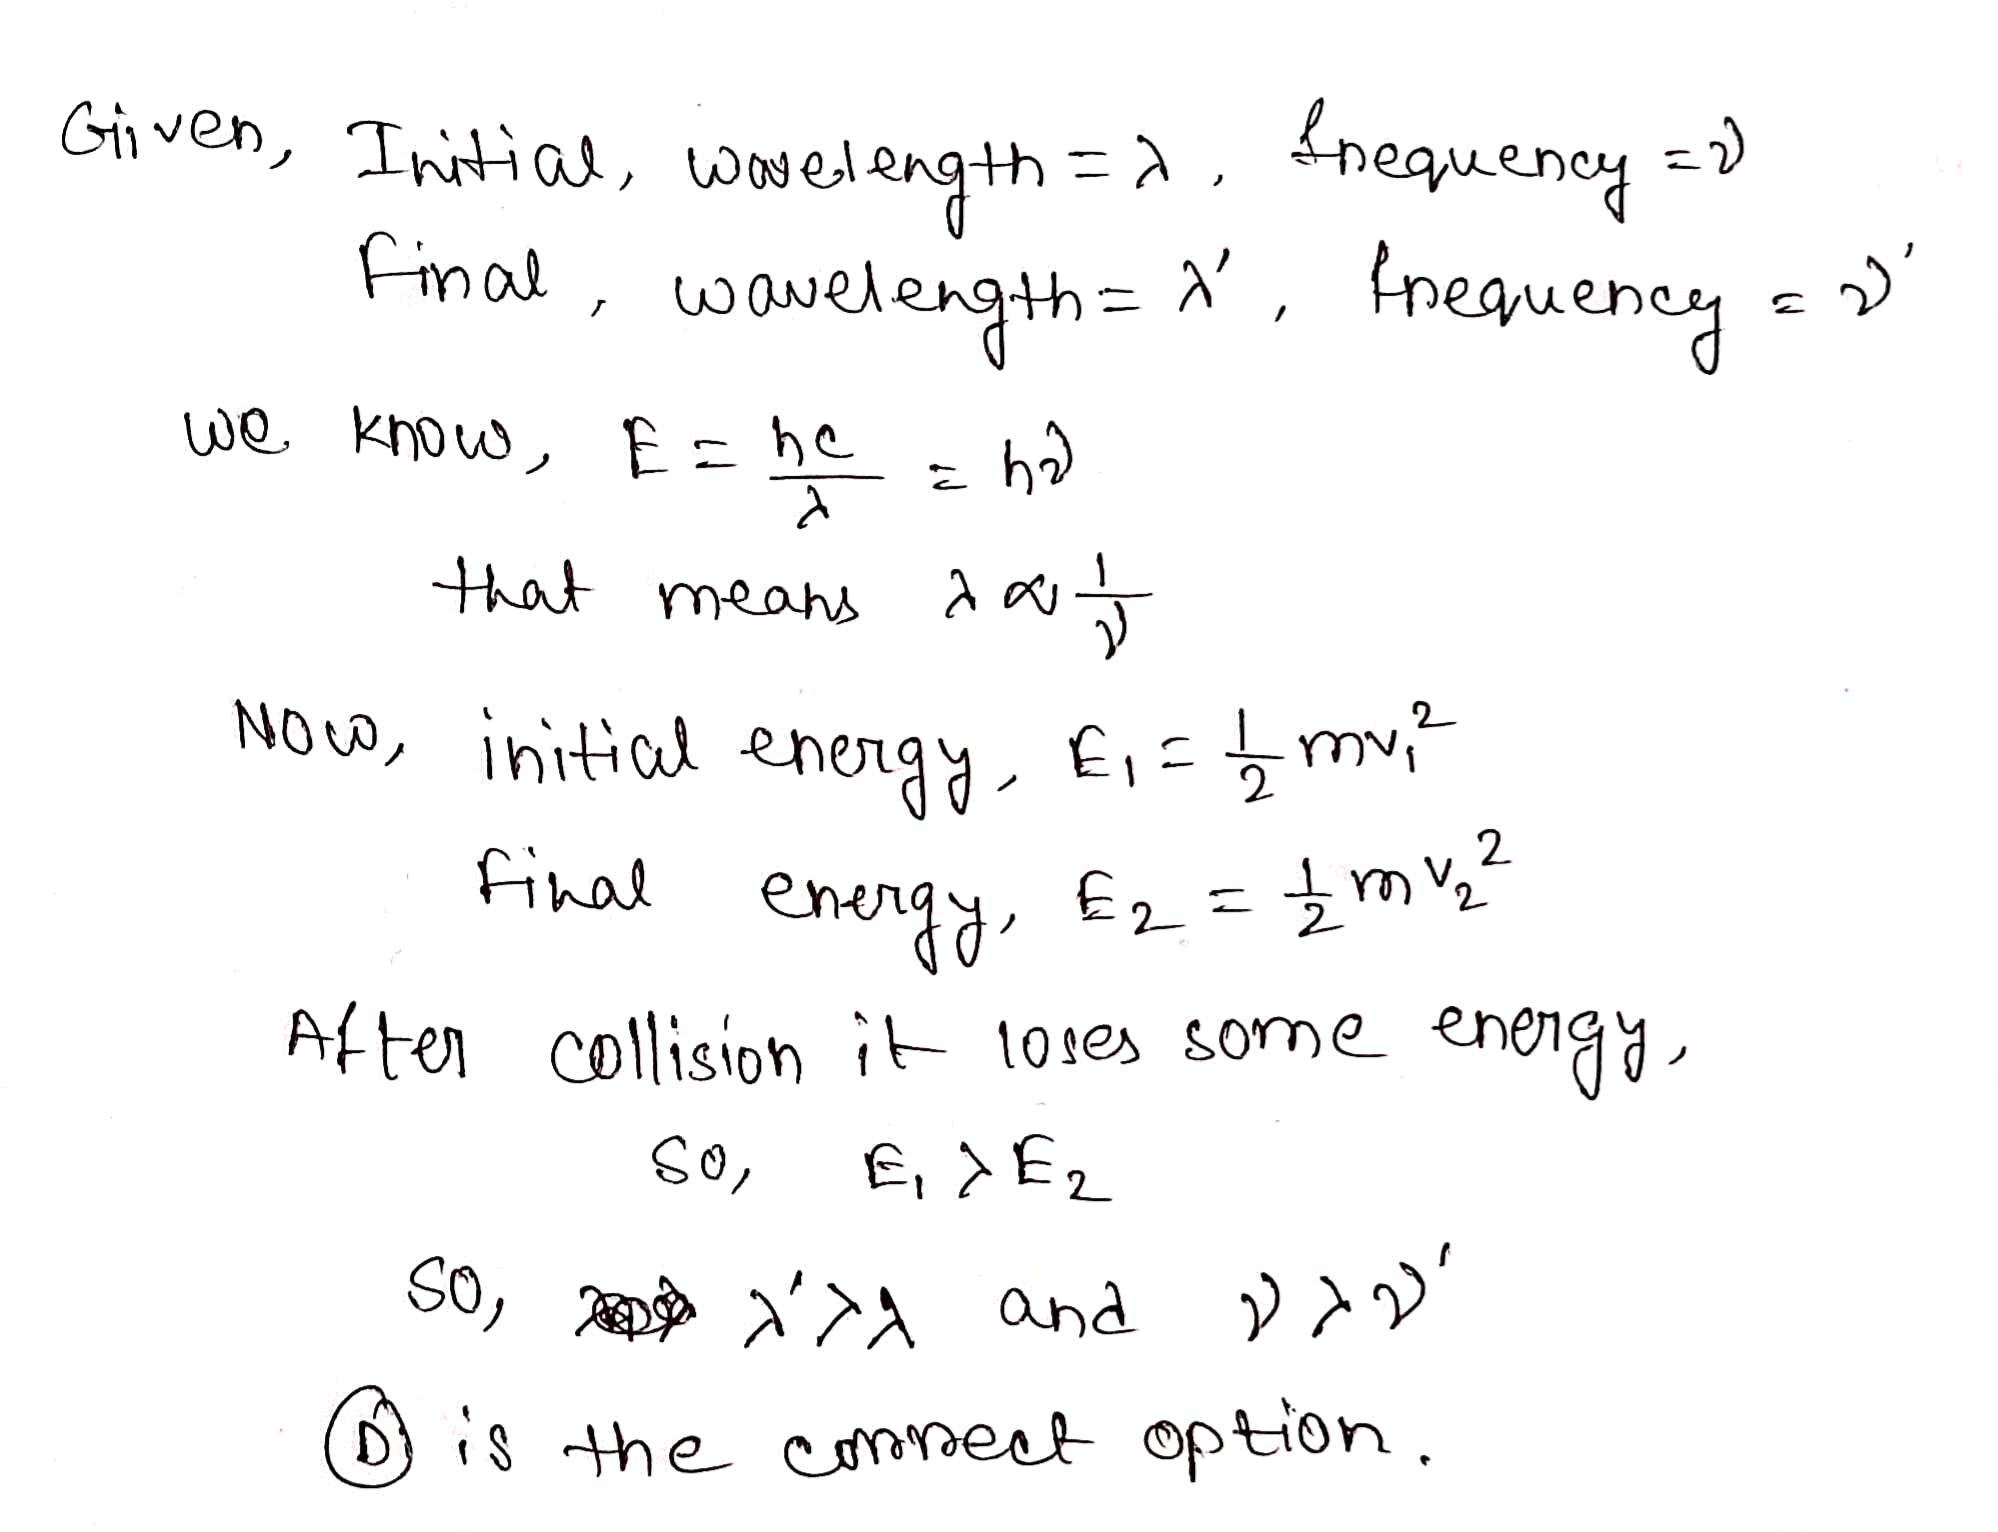 Given, Initial, wavelength = λ, frequency = ν
Final, wavelength = λ', frequency = ν'
we know, E = hc/λ = hν
that means λ ∝ 1/ν
Now, initial energy, E₁ = 1/2 mv₁²
final energy, E₂ = 1/2 mv₂²
After collision it loses some energy,
so, E₁ > E₂
so, λ' > λ and ν > ν'
(D) is the correct option.